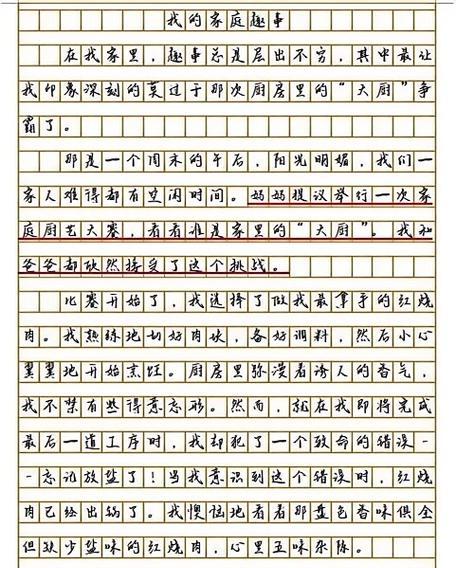 我的家庭趣事
在我家里，趣事总是层出不穷，其中最让
我印象深刻的莫过于那次厨房里的“大厨”争
霸了。
那是一个周末的午后，阳光明媚，我们一
家人难得都有空闲时间。妈妈提议举行一次家
庭厨艺大赛，看看谁是家里的“大厨”。我和
爸爸都欣然接受了这个挑战。
比赛开始了，我选择了做我最拿手的红烧
肉。我熟练地切好肉块，备好调料，然后小心
翼翼地开始烹饪。厨房里弥漫着诱人的香气，
我不禁有些得意忘形。然而，就在我即将完成
最后一道工序时，我却犯了一个致命的错误-
-忘记放盐了！当我意识到这个错误时，红烧
肉已经出锅了。我懊恼地看着那盘色香味俱全
但缺少盐味的红烧肉，心里五味杂陈。